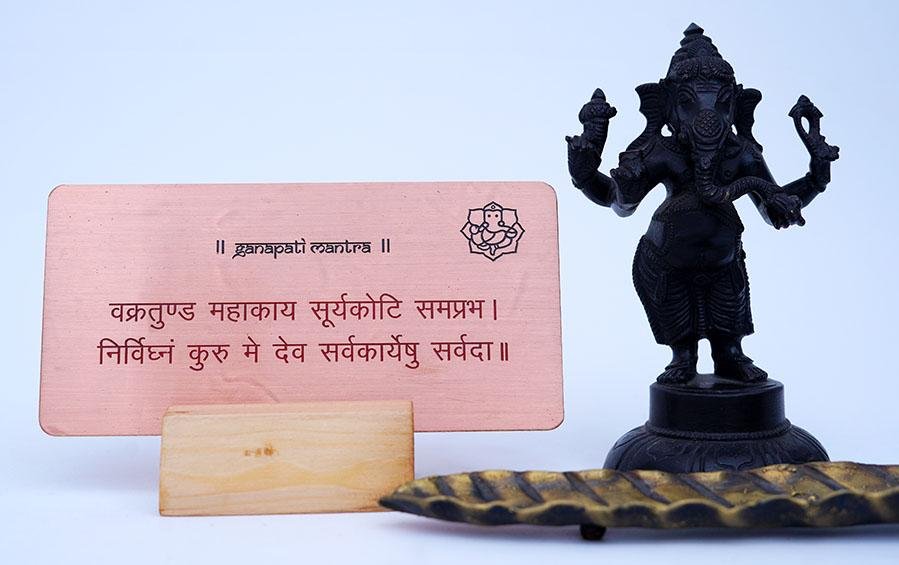 ॥ ganapati mantra ॥
वक्रतुण्ड महाकाय सूर्यकोटि समप्रभ।
निर्विघ्नं कुरु मे देव सर्वकार्येषु सर्वदा॥